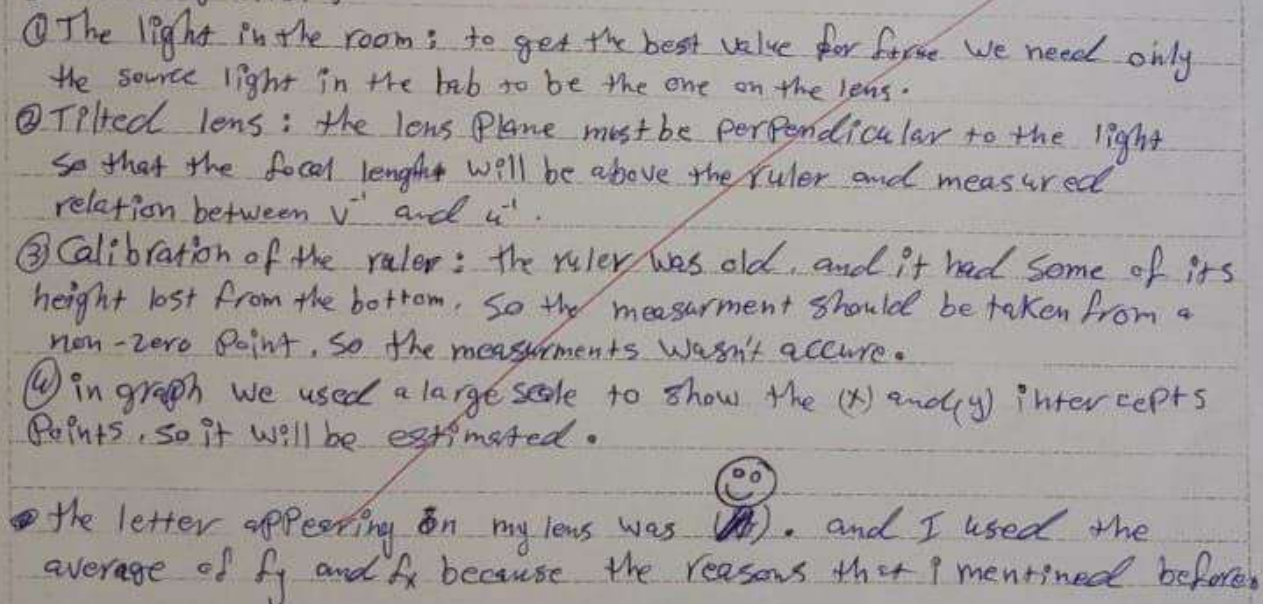 ① The light in the room : to get the best value for ftrue we need only
the source light in the lab to be the one on the lens.
② Tilted lens : the lens Plane must be perpendicular to the light
so that the focal lenght will be above the ruler and measured
relation between v⁻¹ and u⁻¹.
③ Calibration of the ruler : the ruler was old, and it had some of its
height lost from the bottom, so the measurment should be taken from a
non-zero Point, so the measurments wasn't accure.
④ in graph we used a large scale to show the (x) and (y) intercepts
Points, so it will be estimated.
the letter appearing on my lens was . and I used the
average of fy and fx because the reasons that i mentined before.